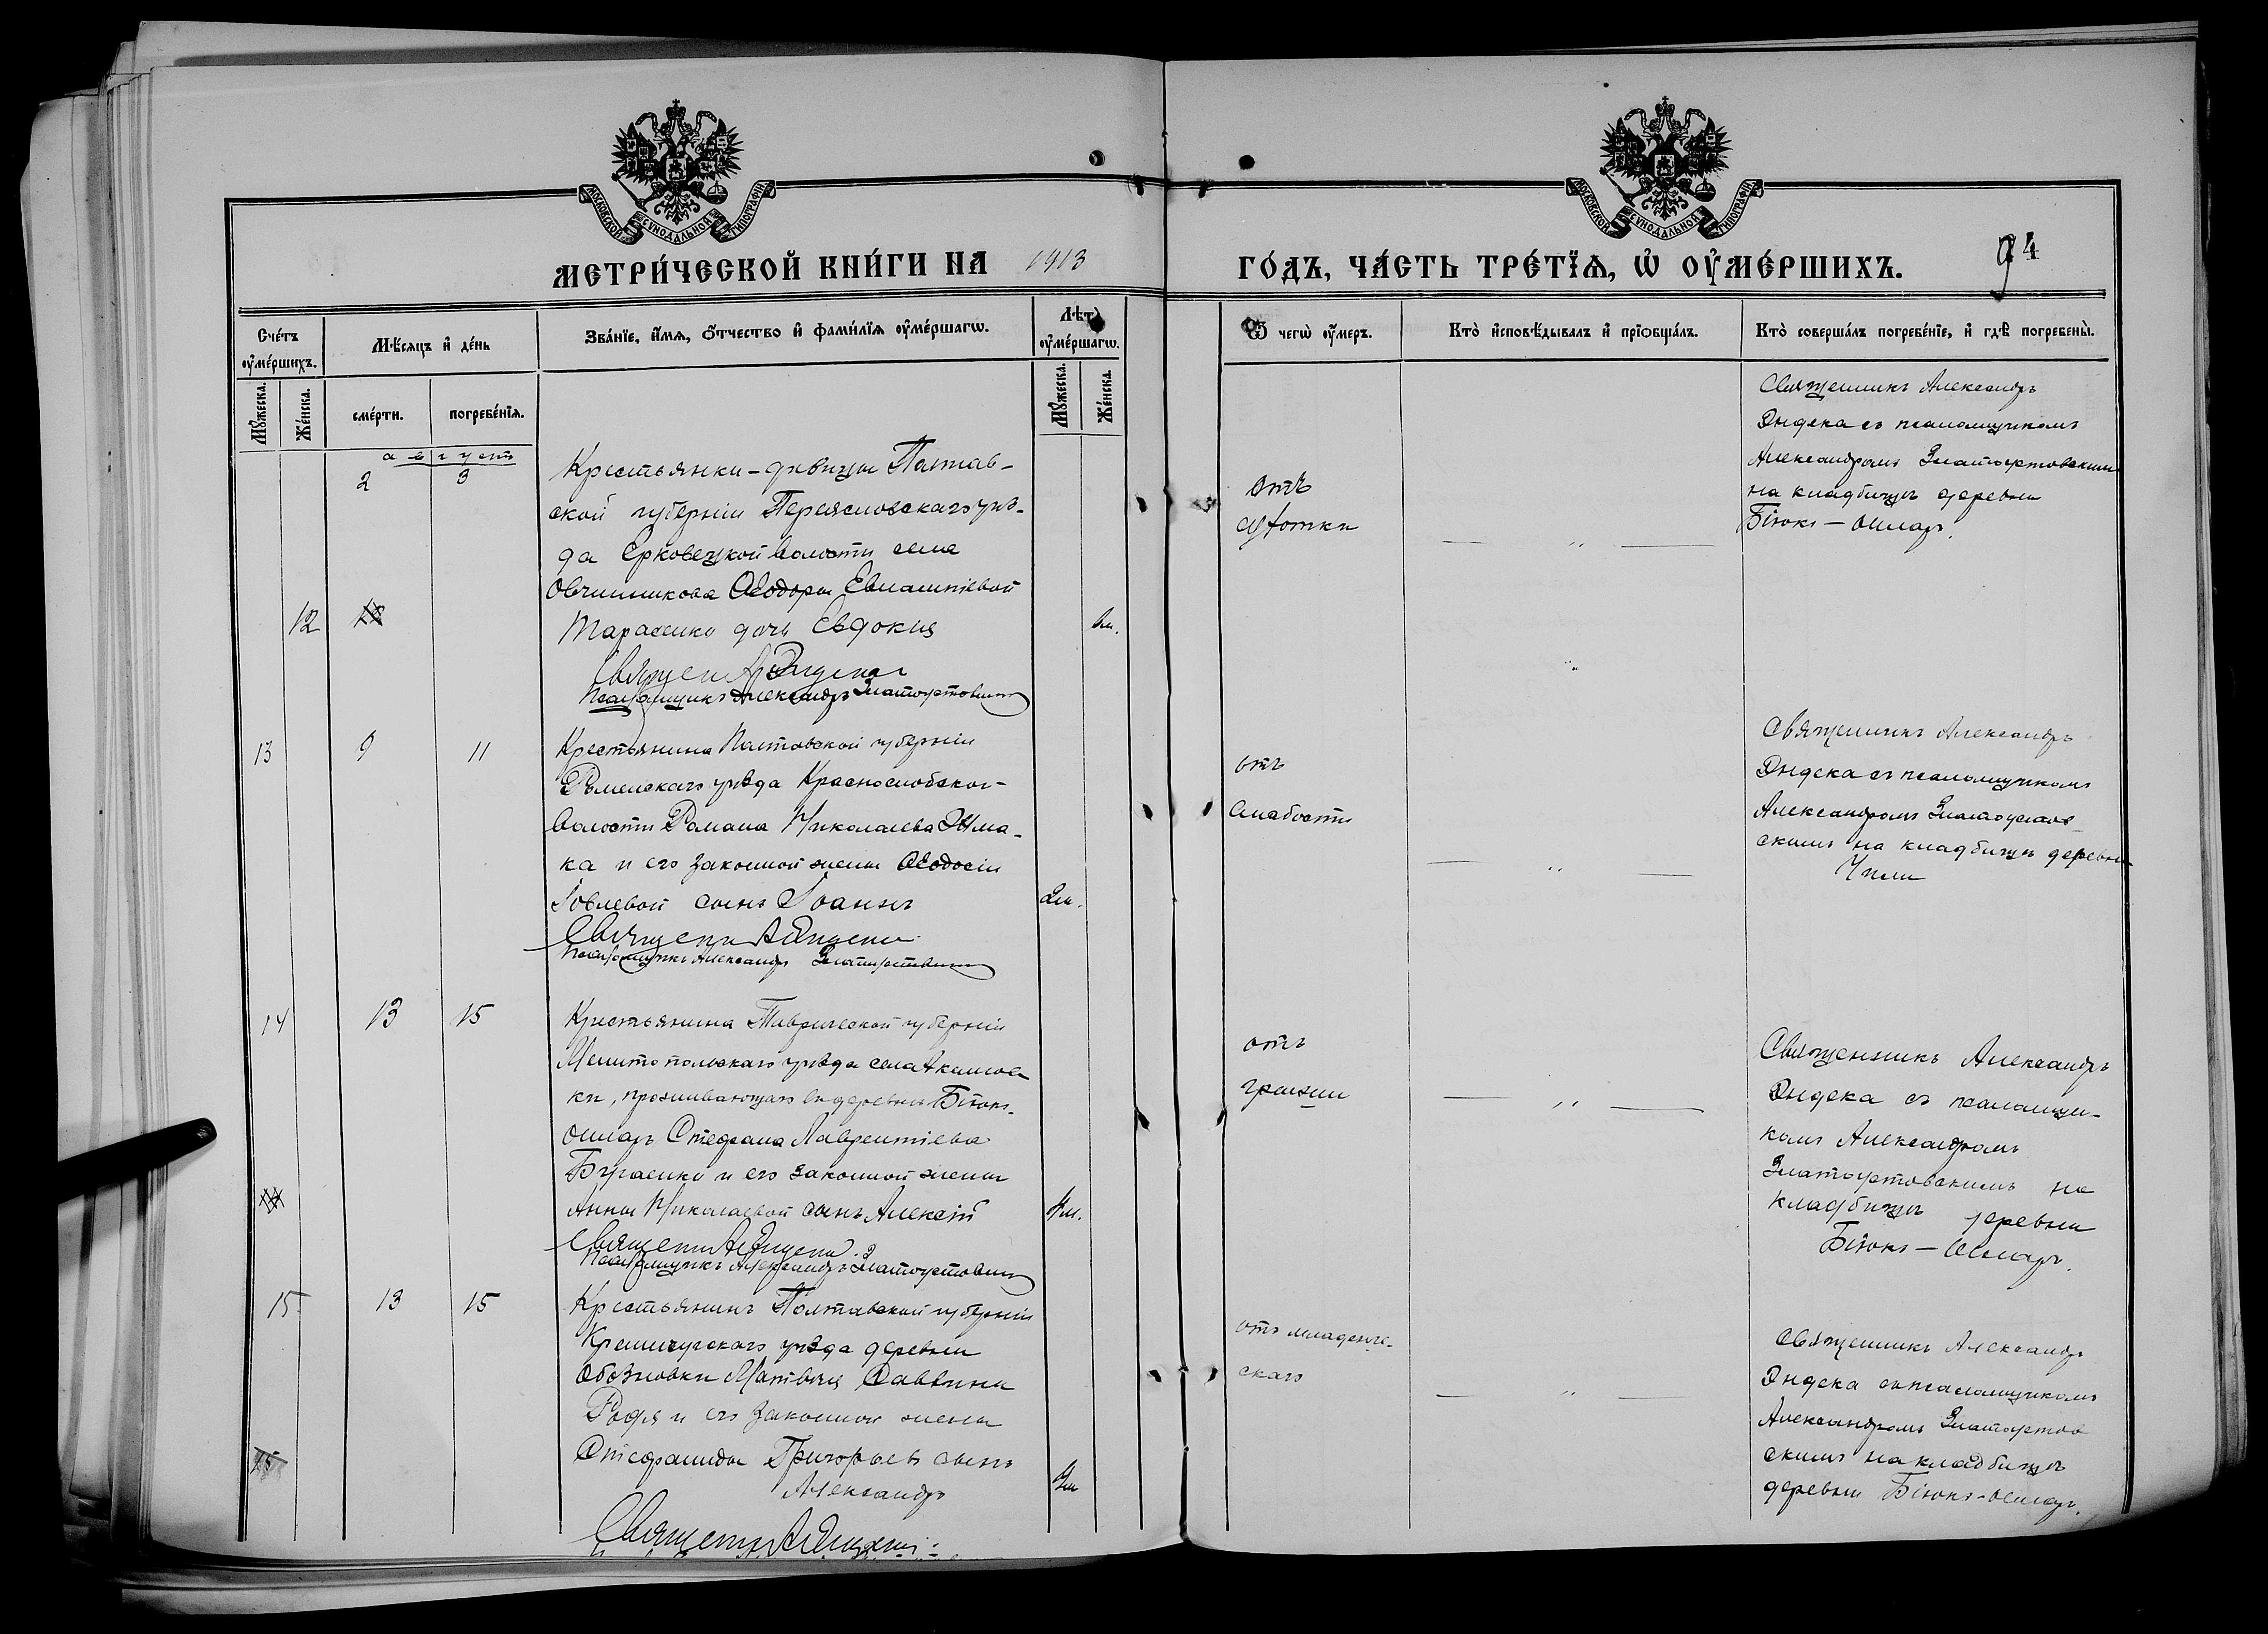 МОСКОВСКОЙ СѴНОДАЛЬНОЙ ТИПОГРАФІИ
МОСКОВСКОЙ СѴНОДАЛЬНОЙ ТИПОГРАФІИ
МЕТРИ́ЧЕСКОЙ КНИ́ГИ НА 1913 ГО́ДЪ, ЧА́СТЬ ТРЕ́ТЇѦ, Ѡ҆ ОУ҆МЕ́РШИХЪ.
94
Сче́тъ оу҆ме́ршихъ.
Мѣ́сяцъ и҆ де́нь
Зва́нїе, и҆́мя, ѻ҆́тчество и҆ фами́лїя оу҆ме́ршагѡ.
Лѣ́тъ оу҆ме́ршагѡ.
Ѿ чегѡ̀ оу҆́меръ.
Кто̀ и҆сповѣ́дывалъ и҆ прїѡбща́лъ.
Кто̀ соверша́лъ погребе́нїе, и҆ гдѣ̀ погребены̀.
Мꙋ́жеска.
Же́нска.
сме́рти.
погребе́нїя.
Мꙋ́жеска.
Же́нска.
августъ
12
2
3
Крестьянки-дѣвицы Полтав-
ской губерніи Переяславскаго уѣз-
да Ерковецкой волости села
Овчинникова Ѳеодоры
Тарасенко дочь Евдокия
Псаломщикъ Александръ Златоустовский
отъ
Священникъ Александръ
Яндека съ псаломщикомъ
Александромъ Златоустовскимъ
на кладбищѣ деревни
Біюкъ-Онларъ.
13
9
11
Крестьянина Полтавской губерніи
Роменскаго уѣзда
волости Романа Николаева
ка и его законной жены Ѳеодосіи
Іовлевой сынъ Іоаннъ
2м.
Псаломщикъ Александръ Златоустовский
отъ
слабости
Священникъ Александръ
Яндека съ псаломщикомъ
Александромъ Златоустов-
скимъ на кладбищѣ деревни
14
13
15
Крестьянина Таврической губерніи
Мелитопольскаго уѣзда села Акимов
ки, проживающаго въ деревнѣ Біюкъ-
Онларъ Стефана Лаврентіева
и его законной жены
Анны Николаевой сынъ Алексій
4м.
Псаломщикъ Александръ Златоустовский
отъ
грызи
Священникъ Александръ
Яндека съ псаломщи-
комъ Александромъ
Златоустовскимъ на
кладбищѣ деревни
Біюкъ-Онларъ.
15
13
15
Крестьянинъ Полтавской губерніи
Кременчугскаго уѣзда деревни
Обозновки Матвѣя Саввина
и его законной жены
Стефаниды Григорьев сынъ
Александръ
отъ младенче-
скаго
Священникъ Александръ
Яндека съ псаломщикомъ
Александромъ Златоустов
скимъ на кладбищѣ
деревни Біюкъ-Онларъ.